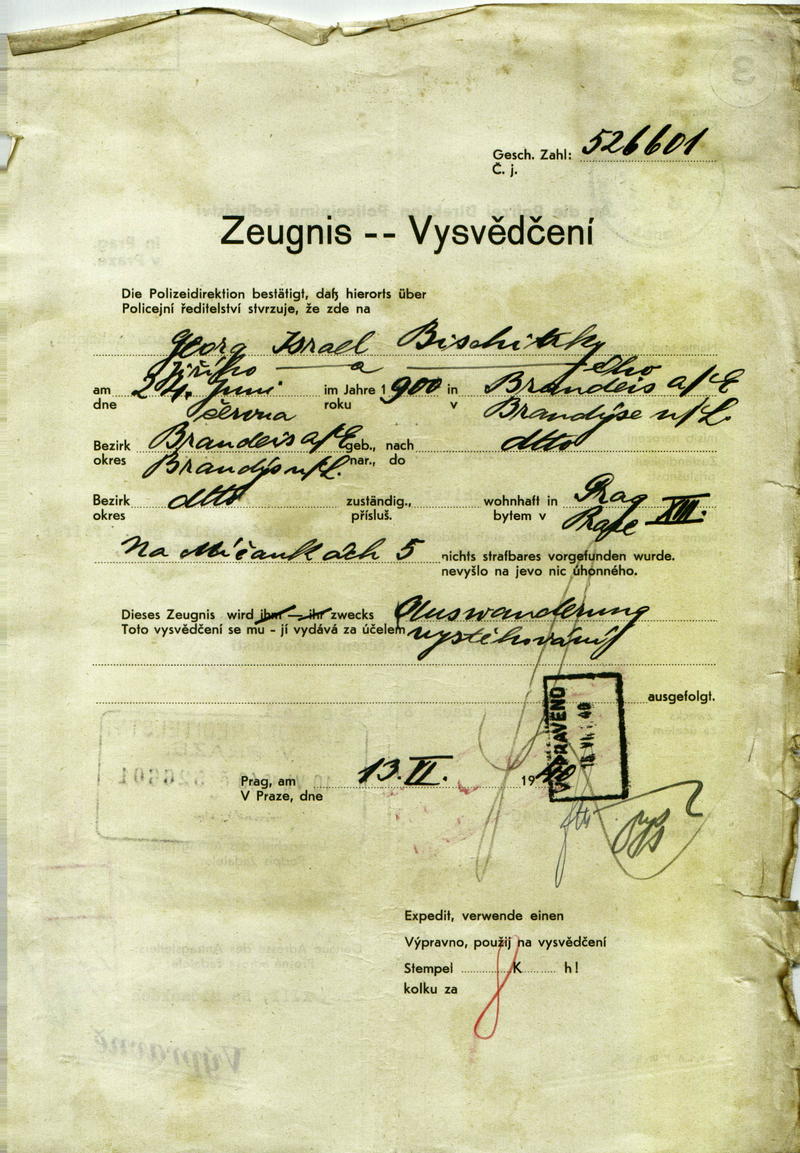 Gesch. Zahl: 526601
Č. j.
Zeugnis -- Vysvědčení
Die Polizeidirektion bestätigt, daß hierorts über
Policejní ředitelství stvrzuje, že zde na
Georg Israel Bischitzky
Jiřího — a — ého
am 24. Juni im Jahre 1900 in Brandeis a/E
dne června roku v Brandýse n/L.
Bezirk Brandeis a/E geb., nach dtto
okres Brandýs n/L. nar., do
Bezirk dtto zuständig., wohnhaft in Prag XIII.
okres přísluš. bytem v Praze
Na Míčankách 5 nichts strafbares vorgefunden wurde.
nevyšlo na jevo nic úhonného.
Dieses Zeugnis wird ihm – ihr zwecks Auswanderung
Toto vysvědčení se mu - jí vydává za účelem vystěhování
ausgefolgt.
VYPRAVENO
Prag, am 13. VI. 1940
V Praze, dne
Expedit, verwende einen
Výpravno, použij na vysvědčení
Stempel 8 K h!
kolku za